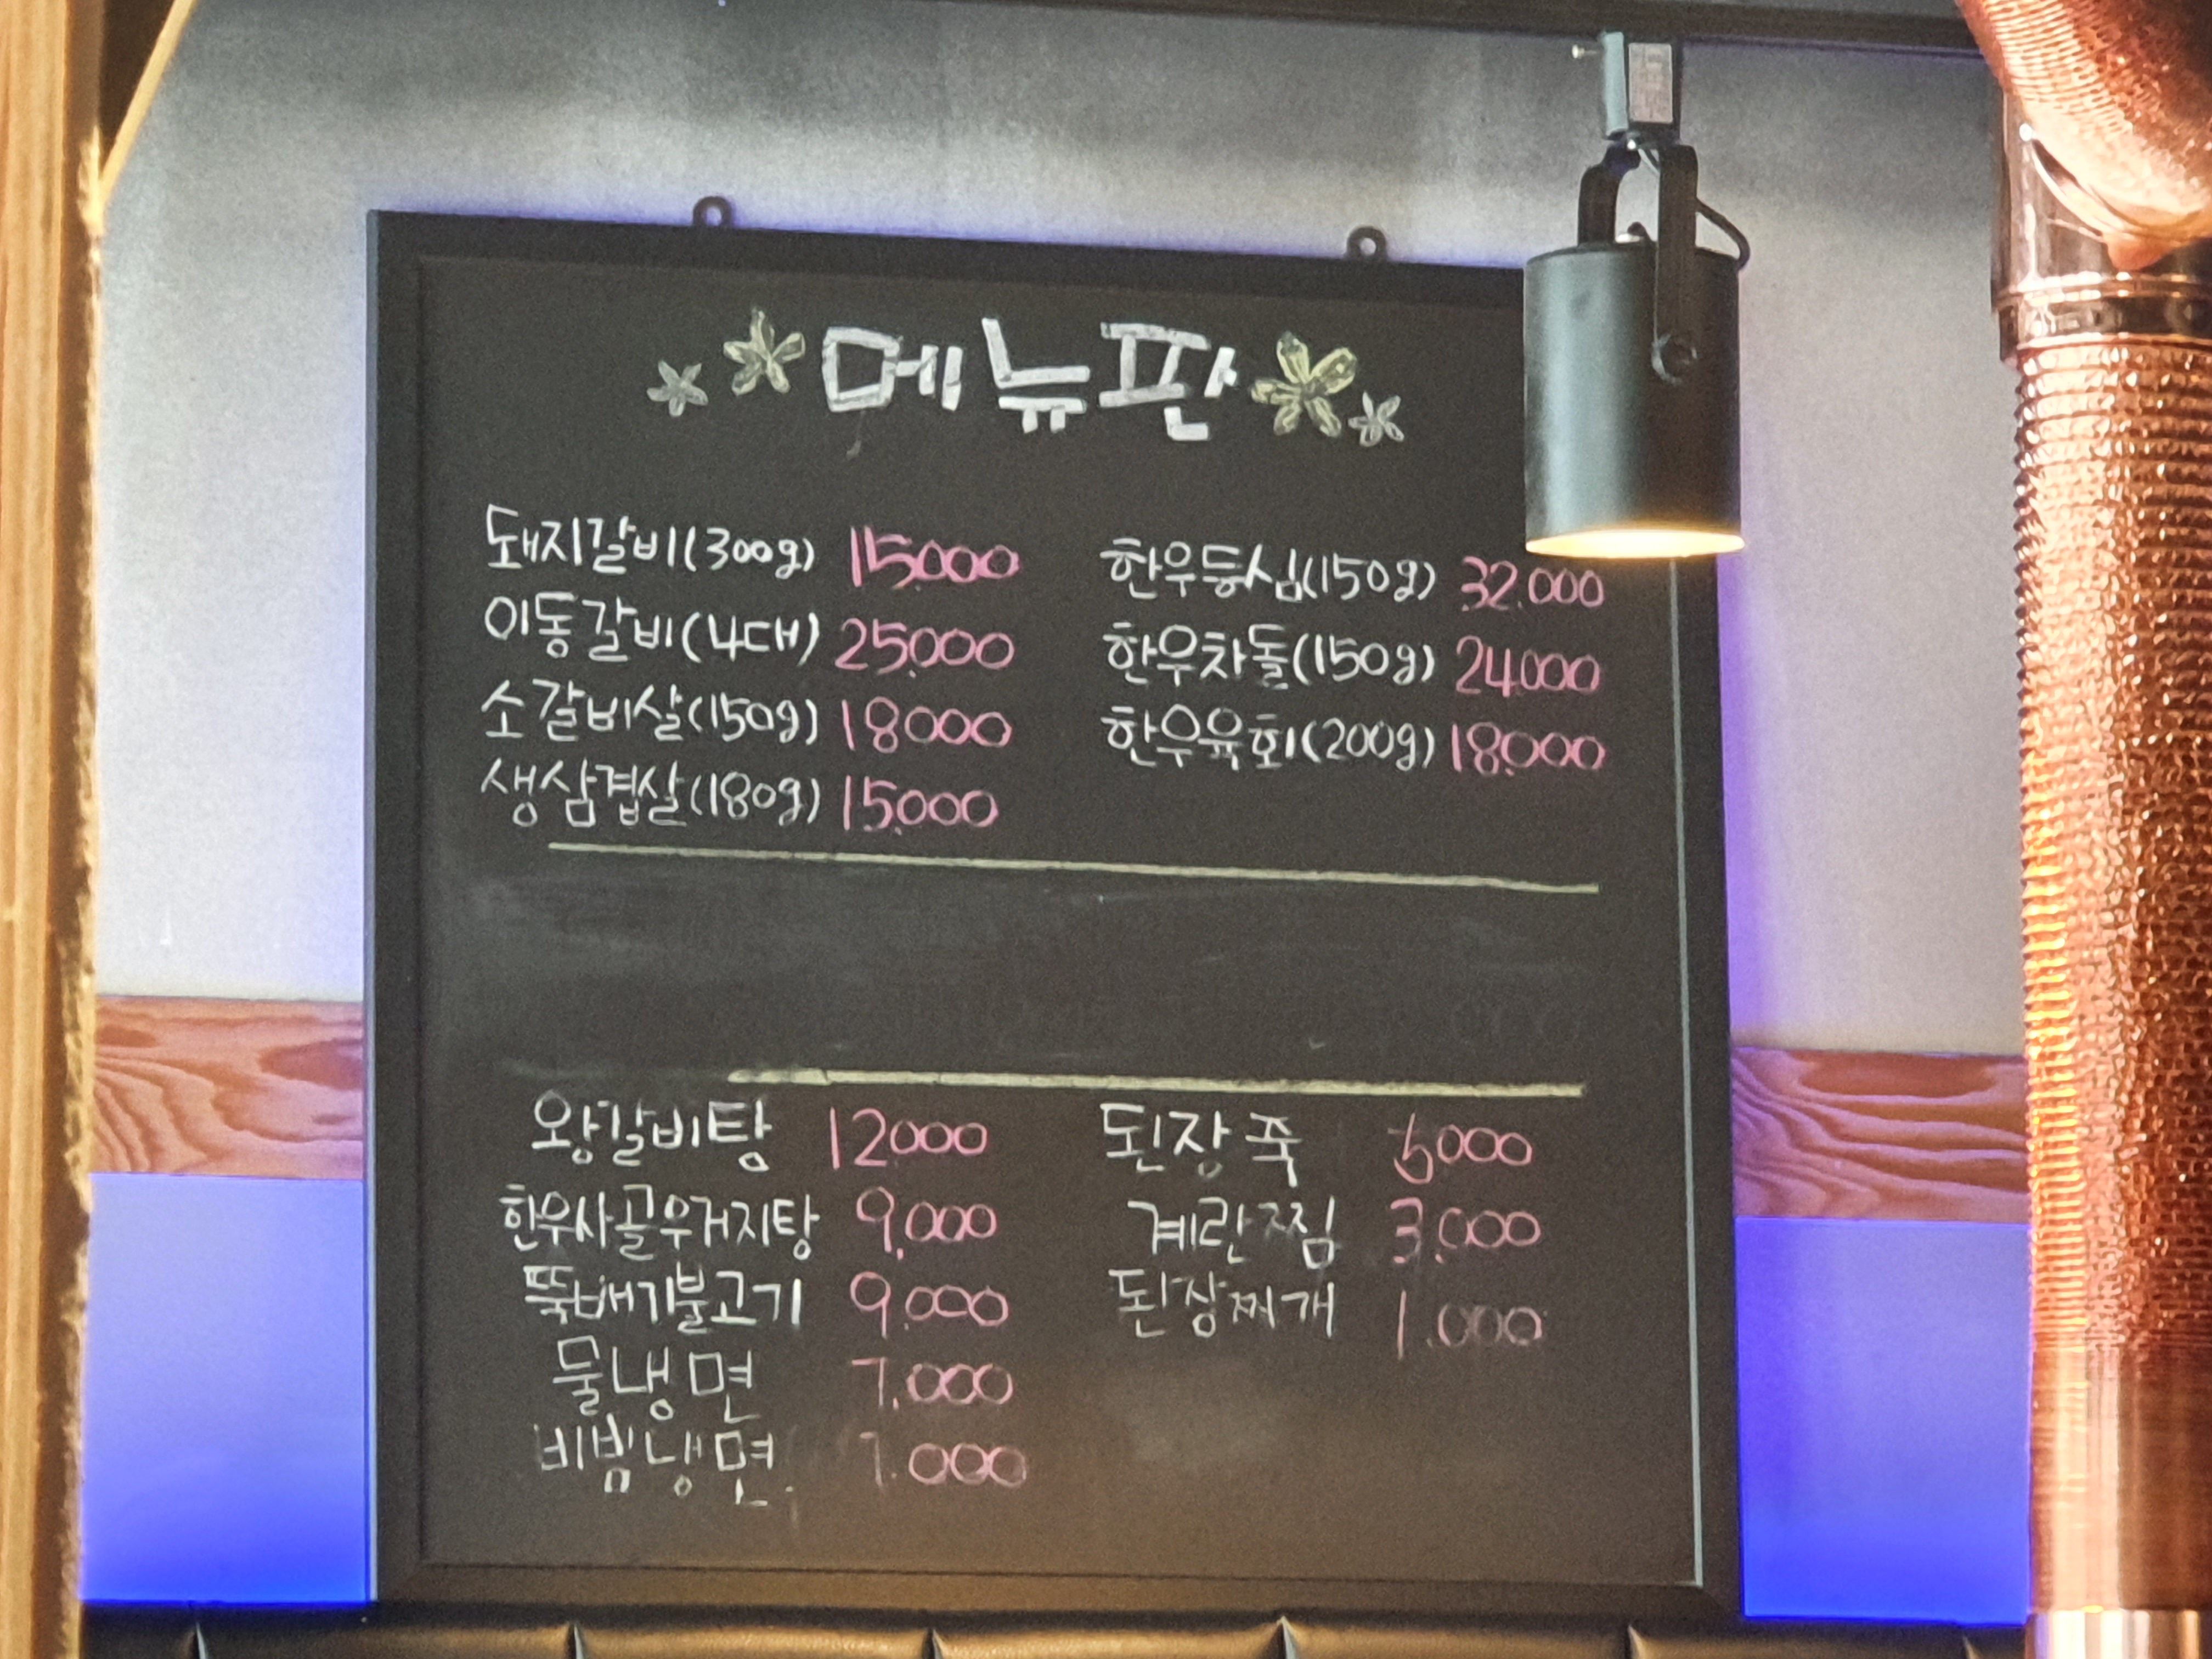 메뉴판
돼지갈비(300g) 15.000
이동갈비(4대) 25.000
소갈비살(150g) 18.000
생삼겹살(180g) 15.000
한우등심(150g) 32.000
한우차돌(150g) 24.000
한우육회(200g) 18.000
왕갈비탕 12.000
한우사골우거지탕 9,000
뚝배기불고기 9.000
물냉면 7.000
비빔냉면 7.000
된장죽 000
계란찜 3.000
된장찌개 1.000